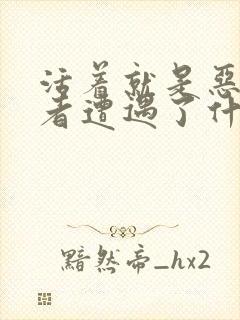 活着就是恶
者遭遇了什
黯然帝_hx2